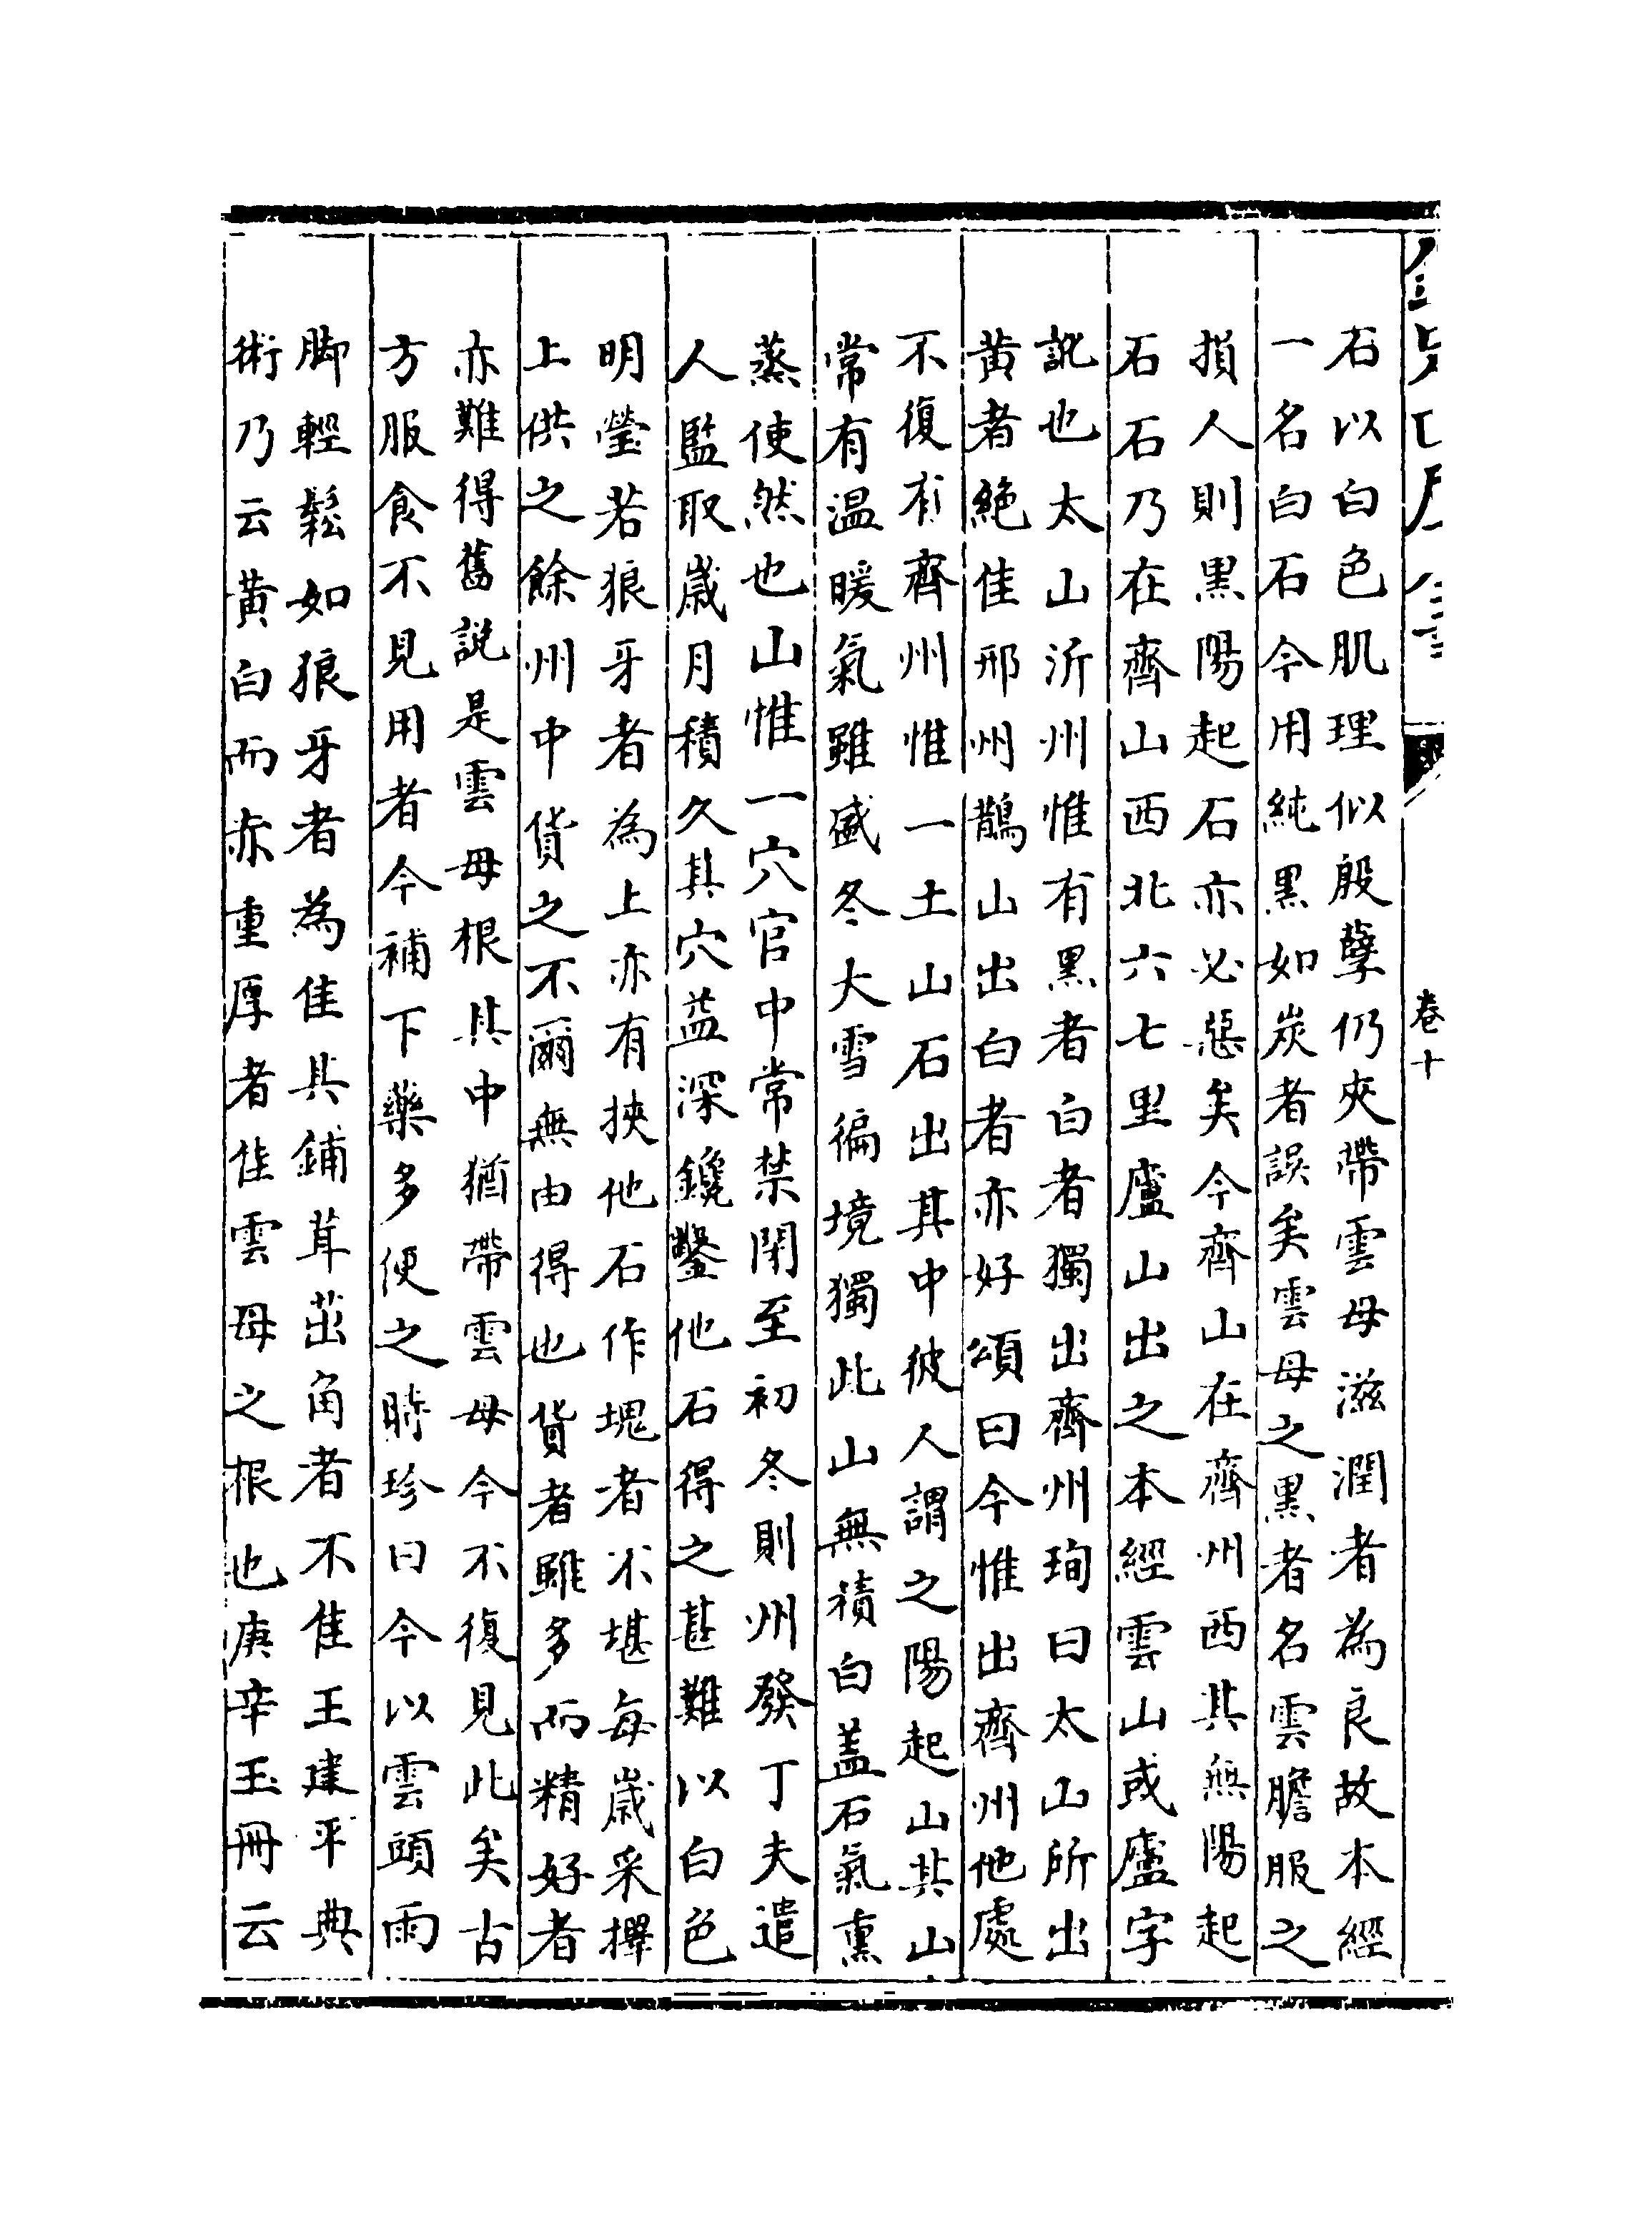 卷十
石以白色肌理似殷孽仍夾帶雲母滋潤者為良故本經
一名白石今用純黑如炭者誤矣雲母之黑者名雲膽服之
損人則黒陽起石亦必惡矣今齊山在齊州西其無陽起
石石乃在齊山西北六七里廬山出之本經雲山或廬字
訛也太山沂州惟有黒者白者獨出齊州珣曰太山所出
黄者絶佳邢州鵲山出白者亦好頌曰今惟出齊州他處
不復有齊州惟一土山石出其中彼人謂之陽起山其山
常有温暖氣雖盛冬大雪徧境獨此山無積白蓋石氣熏
蒸使然也山惟一穴官中常禁閉至初冬則州發丁夫遣
人監取歲月積久其穴益深鑱鑿他石得之甚難以白色
明瑩若狼牙者為上亦有挾他石作塊者不堪每歲采擇
上供之餘州中貨之不爾無由得也貨者雖多而精好者
亦難得舊說是雲母根其中猶帶雲母今不復見此矣古
方服食不見用者今補下藥多使之時珍曰今以雲頭雨
脚輕鬆如狼牙者為佳其鋪茸茁角者不佳王建平典
術乃云黄白而赤重厚者佳雲母之根也庚辛玉冊云